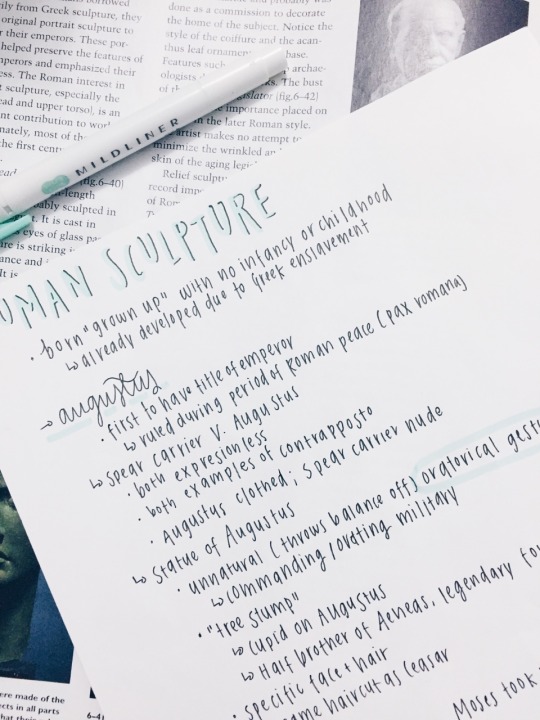 ily from Greek sculpture, they
original portrait sculpture to
their emperors. These por-
helped preserve the features of
mperors and emphasized their
ess. The Roman interest in
t sculpture, especially the
ead and upper torso), is an
nt contribution to
nately, most of
the first
done as a commission to decorate
the home of the subject. Notice the
style of the coiffure and the acan-
thus leaf base.
Features such archae-
ologists The bust
of (fig.6–42)
importance placed on
in the later Roman style.
artist makes no attempt to
minimize the wrinkled
skin of the aging
Relief
record
of
(fig.6–40)
-length
ably sculpted in
. It is cast in
eyes of glass
are is striking
ance and
It is
MILDLINER
UMAN SCULPTURE
· born "grown up" with no infancy or childhood
↳ already developed due to Greek enslavement
→ augustus
· first to have title of emperor
↳ ruled during period of Roman peace (pax romana)
↳ Spear Carrier V. Augustus
· both expresionless
· both examples of contrapposto
· Augustus clothed; Spear carrier nude
↳ Statue of Augustus
· unnatural (throws balance off) oratorical gest
↳ commanding/ military
· "tree stump"
↳ Cupid on Augustus
↳ Half brother of Aeneas, legendary fo
· specific face + hair
ame haircut as Ceasar
Moses took
ere made of the
ects in all parts
6–4